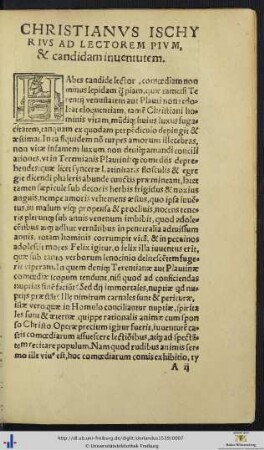 CHRISTIANVS ISCHY
RIVS AD LECTOREM PIVM,
& candidam inuentutem.
HAbes candide lector, comœdiam non
minus lepidam q̃ piam, quæ tametsi Te
rentij venustatem aut Plauti non redo
leat eloquentiam, tamẽ Christiani ho
minis vicem, mũdiq; huius luxus fuga
citatem, tanquam ex quodam perpẽdiculo depingit &
æstimat. In ea siquidem nõ turpes amorum illecebras,
non vitæ infamem luxum non deniq; amandi concili
ationes, vt in Terentianis Plautinisq; comœdiis depre
hendes: quæ licet syncere Latinitatis flosculis & egre
gie dicendi phaleris abunde cunctis præmineant, latet
tamen sæpicule sub decoris herbis frigidus & noxius
anguis, nempe amoris vehemens æstus, quo ipsa iuuẽ
tus, in malum vtiq; propensa & procliuis, nocens tene
ris plerunq; sub annis venenum imbibit, quod adole
scẽtibus
annis, totam hominis corrumpit vitã, & in pessimos
adolescit mores. Felix igitur, o felix illa iuuentus erit,
quæ sub tanto verborum lenocinio delitescẽtem fuge
rit viperam. In quem deniq; Terentianæ aut Plautinæ
comœdiæ scopum tendunt, nisi quod ad conficiendas
nuptias sint facessere? Sed dij immortales, nuptiæ
nuptijs præstãt? Illę nimirum carnales sunt & perituræ,
istæ vero, quæ in Homulo conciliantur nuptiæ, spirita
les sunt & æternæ, quippe rationalis animæ cum spon
so Christo. Operæprecium igitur fuerit, iuuentutẽ ca
stis comœdiarum assuescere lectiõibus, atq; ad specta
tem recitare populum. Nam quod rudibus animis ser
mo ille viuꝰ est, hoc comœdiarum comis exhibitio, ty
A ij
http://dl.ub.uni-freiburg.de/diglit/dorlandus1539/0007
© Universitätsbibliothek Freiburg